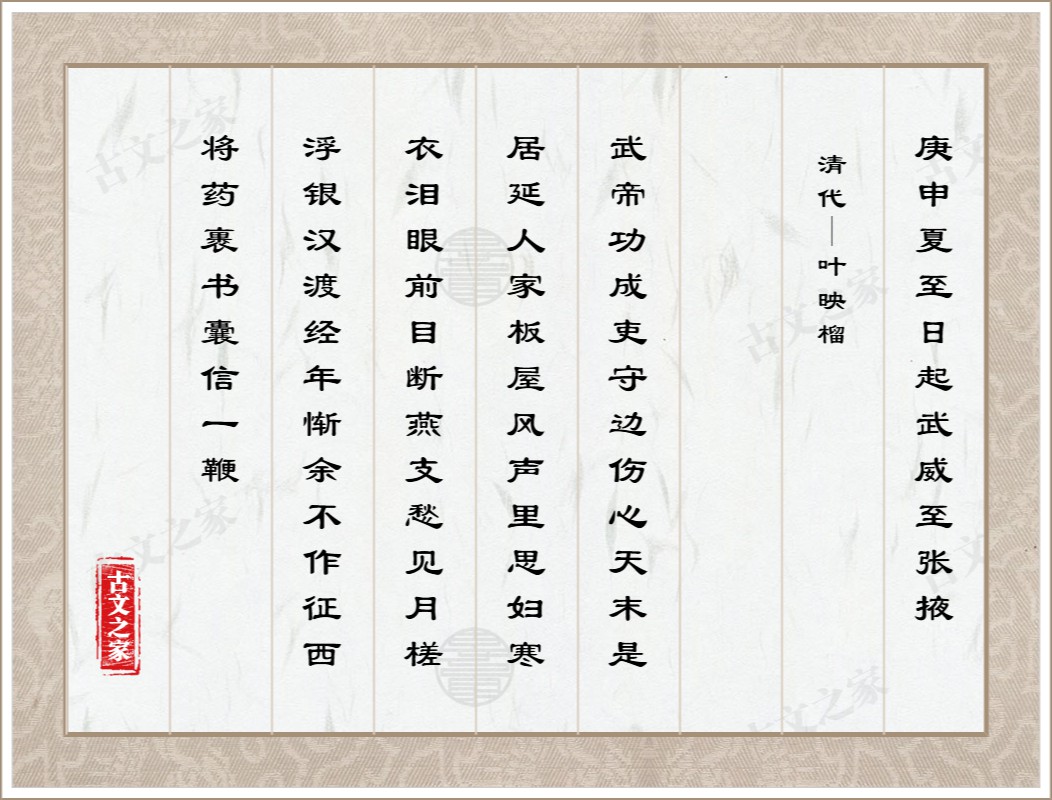 庚申夏至日起武威至张掖
清代—叶映榴
武帝功成吏守边伤心天末是
居延人家板屋风声里思妇寒
衣泪眼前目断燕支愁见月槎
浮银汉渡经年惭余不作征西
将药裹书囊信一鞭
古文之家
古文之家
古文之家
古文之家
古文之家